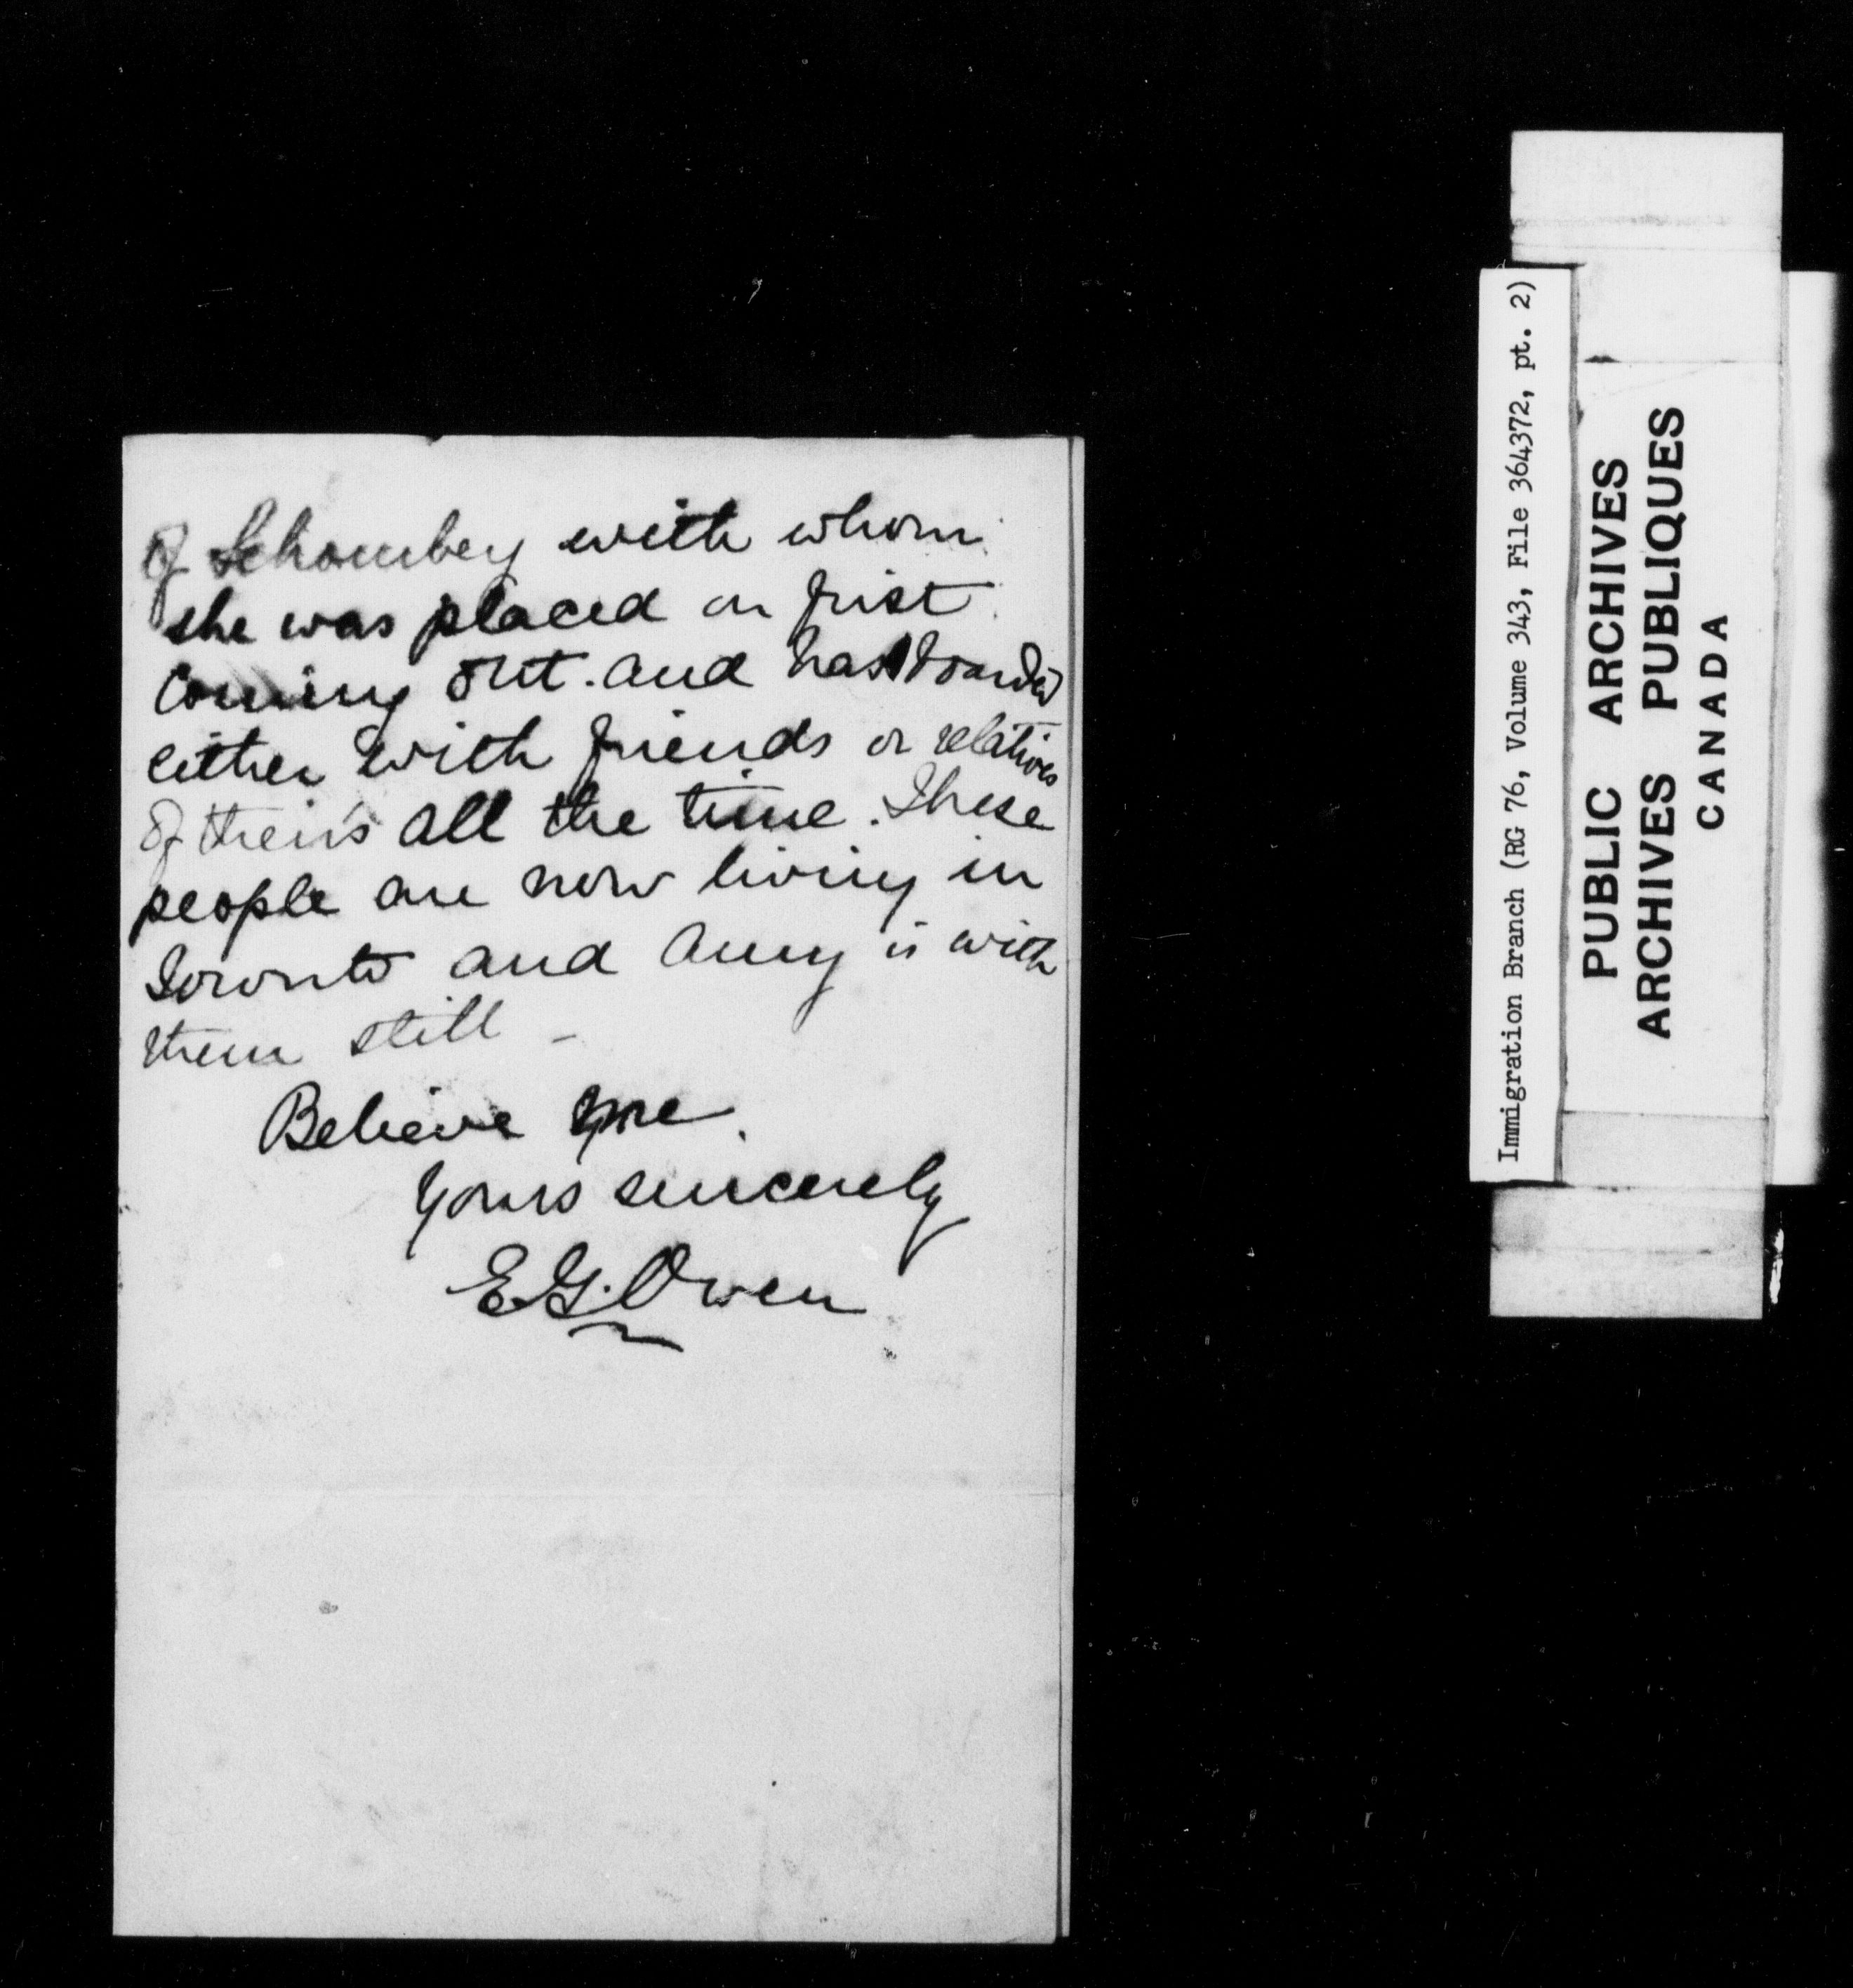 of Schomberg with whom
she was placed on first
Coming out. and has boarded
either with friends or relatives
of their's all the time. These
people are now living in
Toronto and Amy is with
them still -
Believe me.
Yours sincerely
E.G. Owen
Immigration Branch (RG 76, Volume 343, File 364372, pt. 2)
PUBLIC ARCHIVES
ARCHIVES PUBLIQUES
CANADA